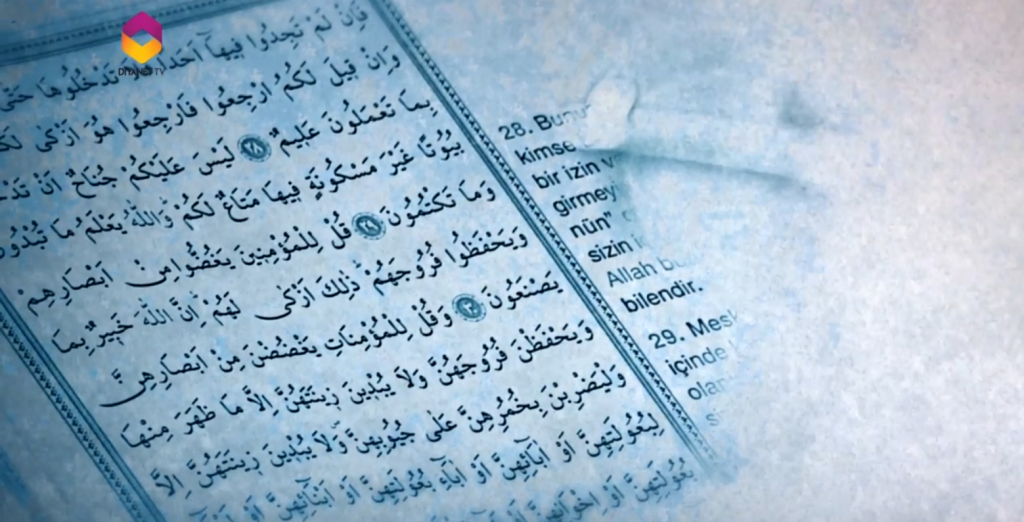 DİYANET TV
فَاِنْ لَمْ تَجِدُوا فِيهَٓا اَحَدًا تَدْخُلُوهَا حَتّٰى
وَاِنْ قِيلَ لَكُمُ ارْجِعُوا فَارْجِعُوا هُوَ اَزْكٰى
بِمَا تَعْمَلُونَ عَلِيمٌ ﴿٢٨﴾ لَيْسَ عَلَيْكُمْ جُنَاحٌ اَنْ
بُيُوتًا غَيْرَ مَسْكُونَةٍ فِيهَا مَتَاعٌ لَكُمْ وَاللّٰهُ يَعْلَمُ مَا تُبْدُونَ
وَمَا تَكْتُمُونَ ﴿٢٩﴾ قُلْ لِلْمُؤْمِنِينَ يَغُضُّوا مِنْ اَبْصَارِهِمْ
وَيَحْفَظُوا فُرُوجَهُمْ ذٰلِكَ اَزْكٰى لَهُمْ اِنَّ اللّٰهَ خَبِيرٌ بِمَا
يَصْنَعُونَ ﴿٣٠﴾ وَقُلْ لِلْمُؤْمِنَاتِ يَغْضُضْنَ مِنْ اَبْصَارِهِنَّ
وَيَحْفَظْنَ فُرُوجَهُنَّ وَلَا يُبْدِينَ زِينَتَهُنَّ اِلَّا مَا ظَهَرَ مِنْهَا
وَلْيَضْرِبْنَ بِخُمُرِهِنَّ عَلٰى جُيُوبِهِنَّ وَلَا يُبْدِينَ زِينَتَهُنَّ اِلَّا
لِبُعُولَتِهِنَّ اَوْ اٰبَٓائِهِنَّ اَوْ اٰبَٓاءِ بُعُولَتِهِنَّ اَوْ اَبْنَٓائِهِنَّ اَوْ
بُعُولَتِهِنَّ اَوْ اِخْوَانِهِنَّ اَوْ
28.
kimse
bir izin
girmey
nün"
sizin
Allah
bilendir.
29. Mesk
içinde
olan